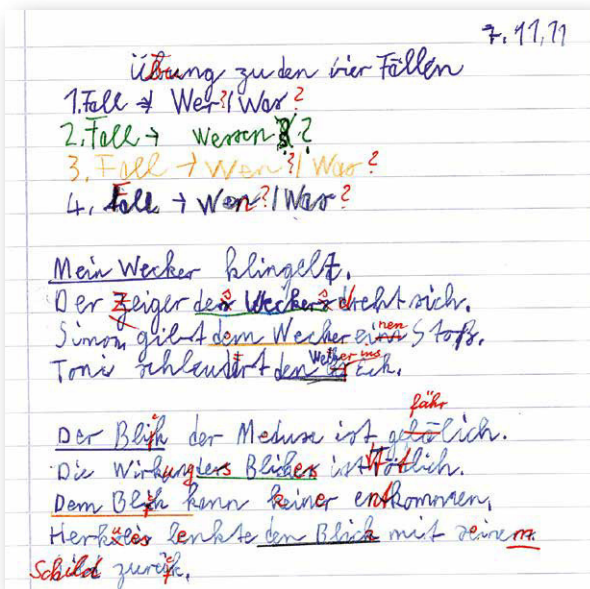 7.11.11
Übung zu den vier Fällen
1. Fall → Wer?/Was?
2. Fall → Wessen?
3. Fall → Wen?/Was?
4. Fall → Wen?/Was?
Mein Wecker klingelt.
Der Zeiger des Weckers dreht sich.
Simon gibt dem Wecker einen Stoß.
Toni schleudert den Wecker ins Eck.
fähr
Der Blick der Meduse ist gefärlich.
Die Wirkung des Blickes ist tödlich.
Dem Blick kann keiner entkommen.
Herkules lenkte den Blick mit seinem
Schild zurück.